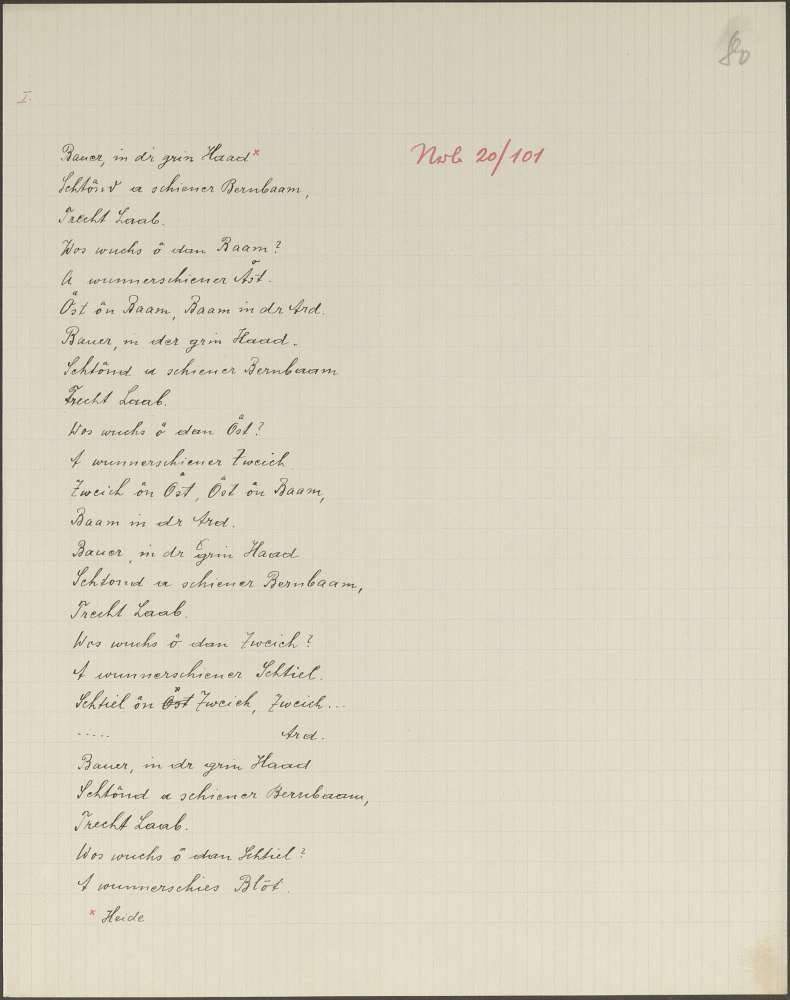 80
I.
Bauer, in dr grin Haad x
Nrb 20/101
Schtönd a schiener Bernbaam,
Trecht Laab.
Wos wuchs å dan Baam?
A wunnerschiener Åst.
Öst ån Baam, Baam in dr Ard.
Bauer, in der grin Haad.
Schtönd a schiener Bernbaam
Trecht Laab.
Wos wuchs å dan Öst?
A wunnerschiener Zweich
Zweich ån Öst, Öst ån Baam,
Baam in dr Ard.
Bauer, in dr grin Haad
Schtönd a schiener Bernbaam,
Trecht Laab.
Wos wuchs å dan Zweich?
A wunnerschiener Schtiel.
Schtiel ån Zweich, Zweich...
..... Ard.
Bauer, in dr grin Haad
Schtönd a schiener Bernbaam,
Trecht Laab.
Wos wuchs å dan Schtiel?
A wunnerschies Blöt.
x Heide